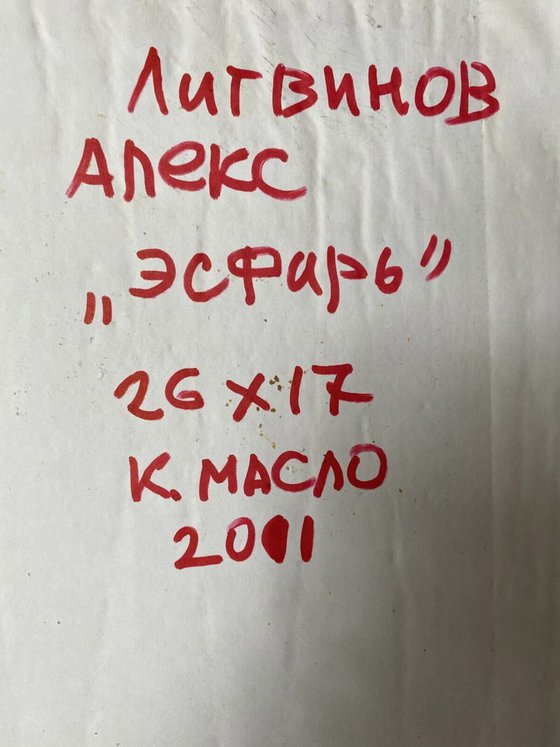 Литвинов
Алекс
„Эсфирь”
26 х 17
К. МАСЛО
2011